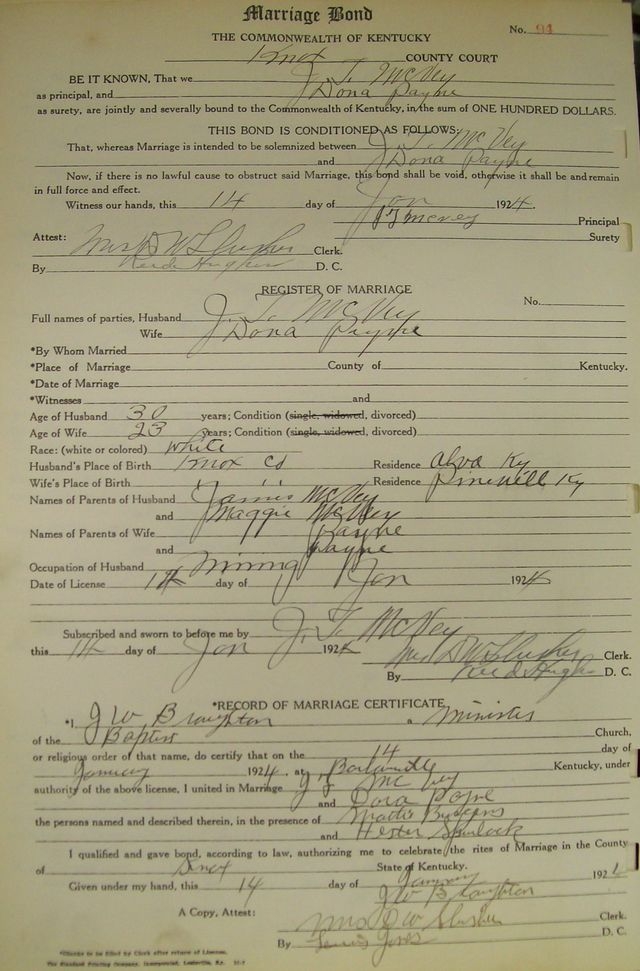 Marriage Bond
No. 91
THE COMMONWEALTH OF KENTUCKY
Knox COUNTY COURT
BE IT KNOWN, That we J. T. McVey
as principal, and Dona Payne
as surety, are jointly and severally bound to the Commonwealth of Kentucky, in the sum of ONE HUNDRED DOLLARS.
THIS BOND IS CONDITIONED AS FOLLOWS:
That, whereas Marriage is intended to be solemnized between J. T. McVey
and Dona Payne
Now, if there is no lawful cause to obstruct said Marriage, this bond shall be void, otherwise it shall be and remain
in full force and effect.
Witness our hands, this 14 day of Jan 1924.
J T mcvey Principal
Surety
Attest: Mrs D W Slusher Clerk.
By Hughes D. C.
REGISTER OF MARRIAGE
No.
Full names of parties, Husband J. T. McVey
Wife Dona Payne
*By Whom Married
*Place of Marriage County of Kentucky.
*Date of Marriage
*Witnesses and
Age of Husband 30 years; Condition (single, widowed, divorced)
Age of Wife 23 years; Condition (single, widowed, divorced)
Race: (white or colored) white
Husband's Place of Birth Knox Co Residence Alva Ky
Wife's Place of Birth " " Residence Pineville Ky
Names of Parents of Husband James McVey
and Maggie McVey
Names of Parents of Wife Payne
and Payne
Occupation of Husband Mining
Date of License 14 day of Jan 1924
Subscribed and sworn to before me by J. T. McVey
this 14 day of Jan 1924
Mrs D W Slusher Clerk.
By Hughes D. C.
*RECORD OF MARRIAGE CERTIFICATE
*I, J W Broughton a Minister
of the Baptist Church,
or religious order of that name, do certify that on the 14 day of
January 1924, at Barbourville Kentucky, under
authority of the above license, I united in Marriage J T Mc Vey
and Dora Payne
the persons named and described therein, in the presence of Mattie
and Hester Spurlock
I qualified and gave bond, according to law, authorizing me to celebrate the rites of Marriage in the County
of Knox State of Kentucky.
Given under my hand, this 14 day of January 192
J W Broughton
A Copy, Attest: Mrs D W Slusher Clerk.
By Jones D. C.
*Blanks to be filled by Clerk after return of License.
The Standard Printing Company, Incorporated, Louisville, Ky.